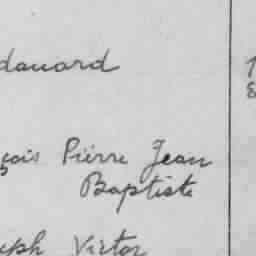 douard
çois Pierre Jean
Baptiste
eph Victor